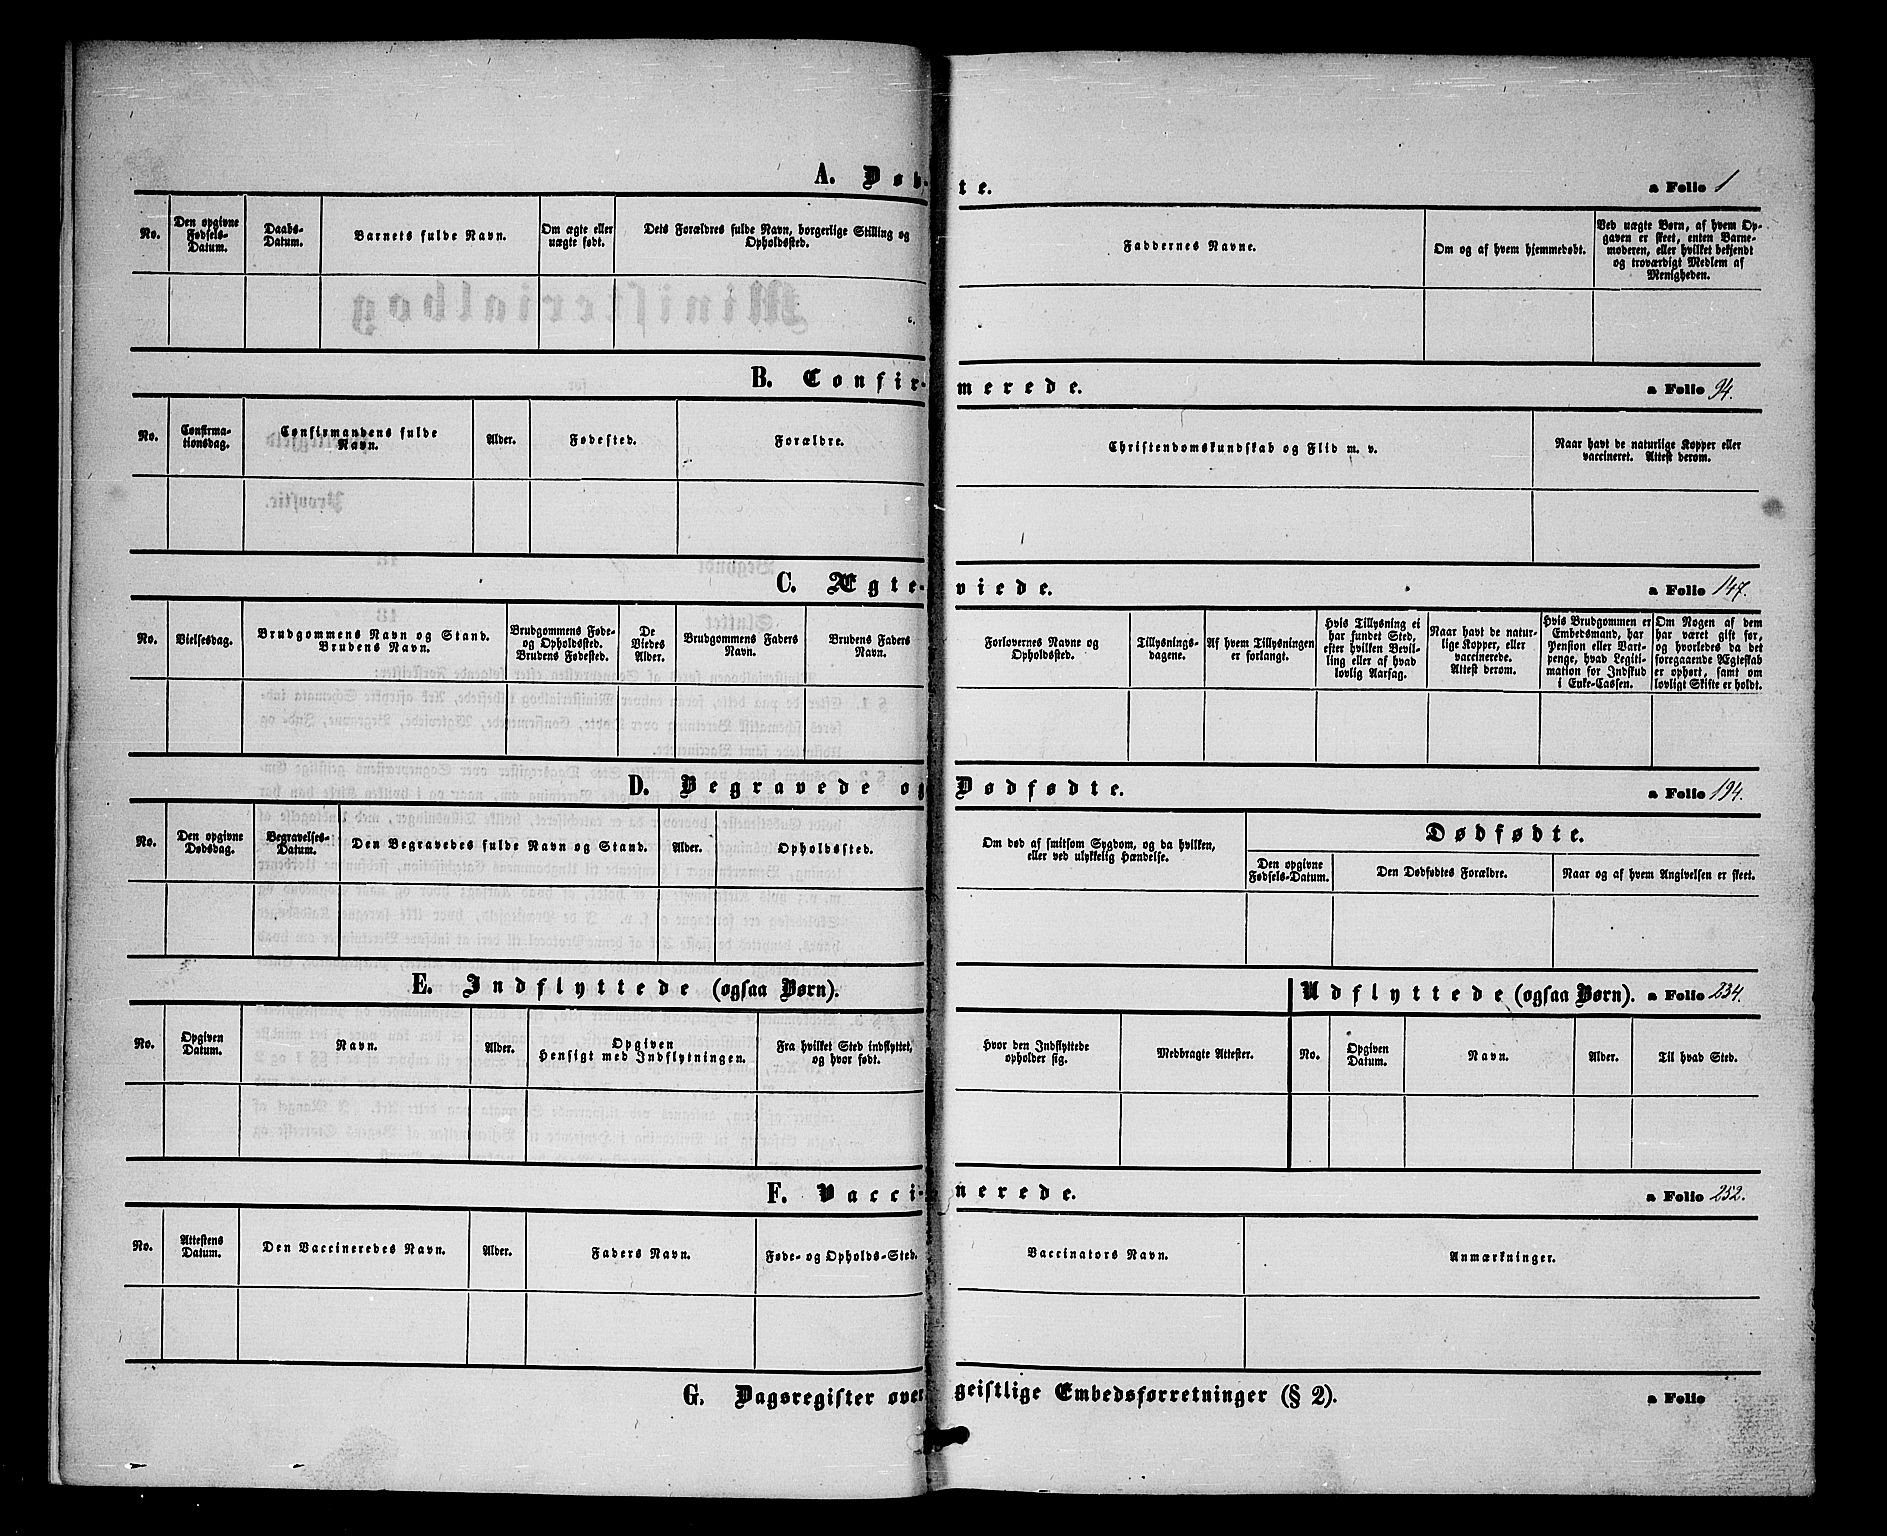 A. Døb- te. a Folio 1
No.
Den opgivne Fødsels-Datum.
Daabs-Datum.
Barnets fulde Navn.
Om ægte eller uægte født.
Dets Forældres fulde Navn, borgerlige Stilling og Opholdssted.
Faddernes Navne.
Om og af hvem hjemmedøbt.
Ved uægte Børn, af hvem Op-
gaven er skeet, enten Barne-
moderen, eller hvilket bekjendt
og troværdigt Medlem af
Menigheden.
B. Confir- merede. a Folio 94.
No.
Confirma-
tionsdag.
Confirmandens fulde
Navn.
Alder.
Fødested.
Forældre.
Christendomskundskab og Flid m. v.
Naar havt de naturlige Kopper eller
vaccineret. Attest derom.
C. Ægte- viede. a Folio 147.
No.
Vielsesdag.
Brudgommens Navn og Stand.
Brudens Navn.
Brudgommens Føde-
og Opholdssted.
Brudens Fødested.
De
Viedes
Alder.
Brudgommens Faders
Navn.
Brudens Faders
Navn.
Forlovernes Navne og
Opholdssted.
Tillysnings-
dagene.
Af hvem Tillysningen
er forlangt.
Hvis Tillysning ei
har fundet Sted,
efter hvilken Bevil-
ling eller af hvad
lovlig Aarsag.
Naar havt de natur-
lige Kopper, eller
vaccinerede.
Attest derom.
Hvis Brudgommen er
Embedsmand, har
Pension eller Vart-
penge, hvad Legiti-
mation for Indskud
i Enke-Cassen.
Om Nogen af dem
har været gift før,
og hvorledes da det
foregaaende Ægteskab
er ophørt, samt om
lovligt Skifte er holdt.
D. Begravede og Dødfødte. a Folio 194.
No.
Den opgivne
Dødsdag.
Begravelses-
Datum.
Den Begravedes fulde Navn og Stand.
Alder.
Opholdssted.
Om død af smitsom Sygdom, og da hvilken,
eller ved ulykkelig Hændelse.
Dødfødte.
Den opgivne
Fødsels-Datum.
Den Dødfødtes Forældre.
Naar og af hvem Angivelsen er skeet.
E. Indflyttede (ogsaa Børn). Udflyttede (ogsaa Børn). a Folio 234.
No.
Opgiven
Datum.
Navn.
Alder.
Opgiven
Hensigt med Indflytningen.
Fra hvilket Sted indflyttet,
og hvor født.
Hvor den Indflyttede
opholder sig.
Medbragte Attester.
No.
Opgiven
Datum.
Navn.
Alder.
Til hvad Sted.
F. Vacci- nerede. a Folio 252.
No.
Attestens
Datum.
Den Vaccineredes Navn.
Alder.
Faders Navn.
Føde- og Opholds-Sted.
Vaccinators Navn.
Anmærkninger.
G. Dagsregister over geistlige Embedsforretninger (§ 2). a Folio